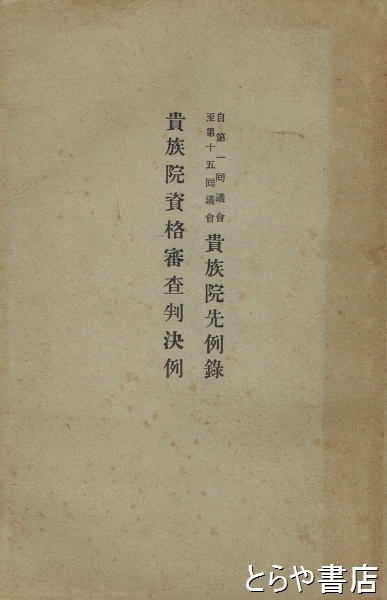 自第一回議會
至第十五回議會
貴族院先例錄
貴族院資格審査判決例
とらや書店